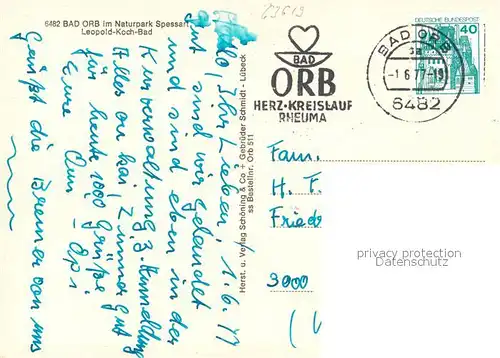 6482 BAD ORB im Naturpark Spessart
Leopold-Koch-Bad
Hallo, Ihr Lieben, 1.6.77
Gut sind wir gelandet
und sind eben in der
Kurverwaltung z. Anmeldung
Alles on kai, Zimmer gut
für heute 1000 Grüße
Eure Omi - Opi
Grüßt die Bremer von uns
Herst. u. Verlag Schöning & Co + Gebrüder Schmidt - Lübeck
ss Bestellnr. Orb 511
63619
BAD
ORB
HERZ-KREISLAUF
RHEUMA
BAD ORB
-1.6.77-19
6482
DEUTSCHE BUNDESPOST
40
Fam.
H. F.
Fried
3000
privacy protection
Datenschutz